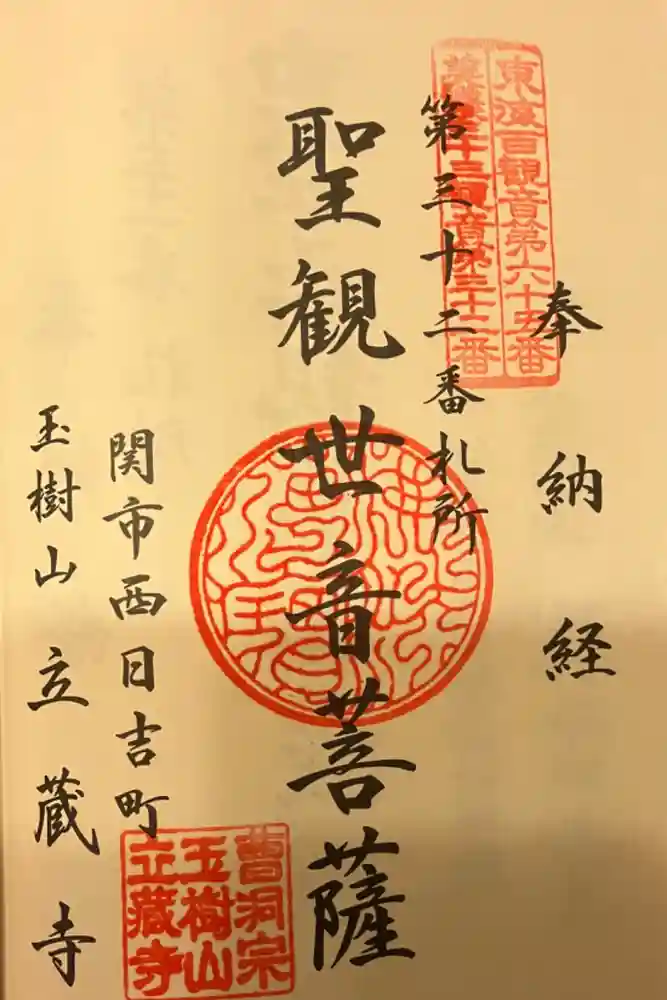 奉納経
東濃百観音第六十五番
美濃三十三観音第三十二番
第三十二番札所
聖観世音菩薩
関市西日吉町
玉樹山立蔵寺
曹洞宗
玉樹山
立蔵寺